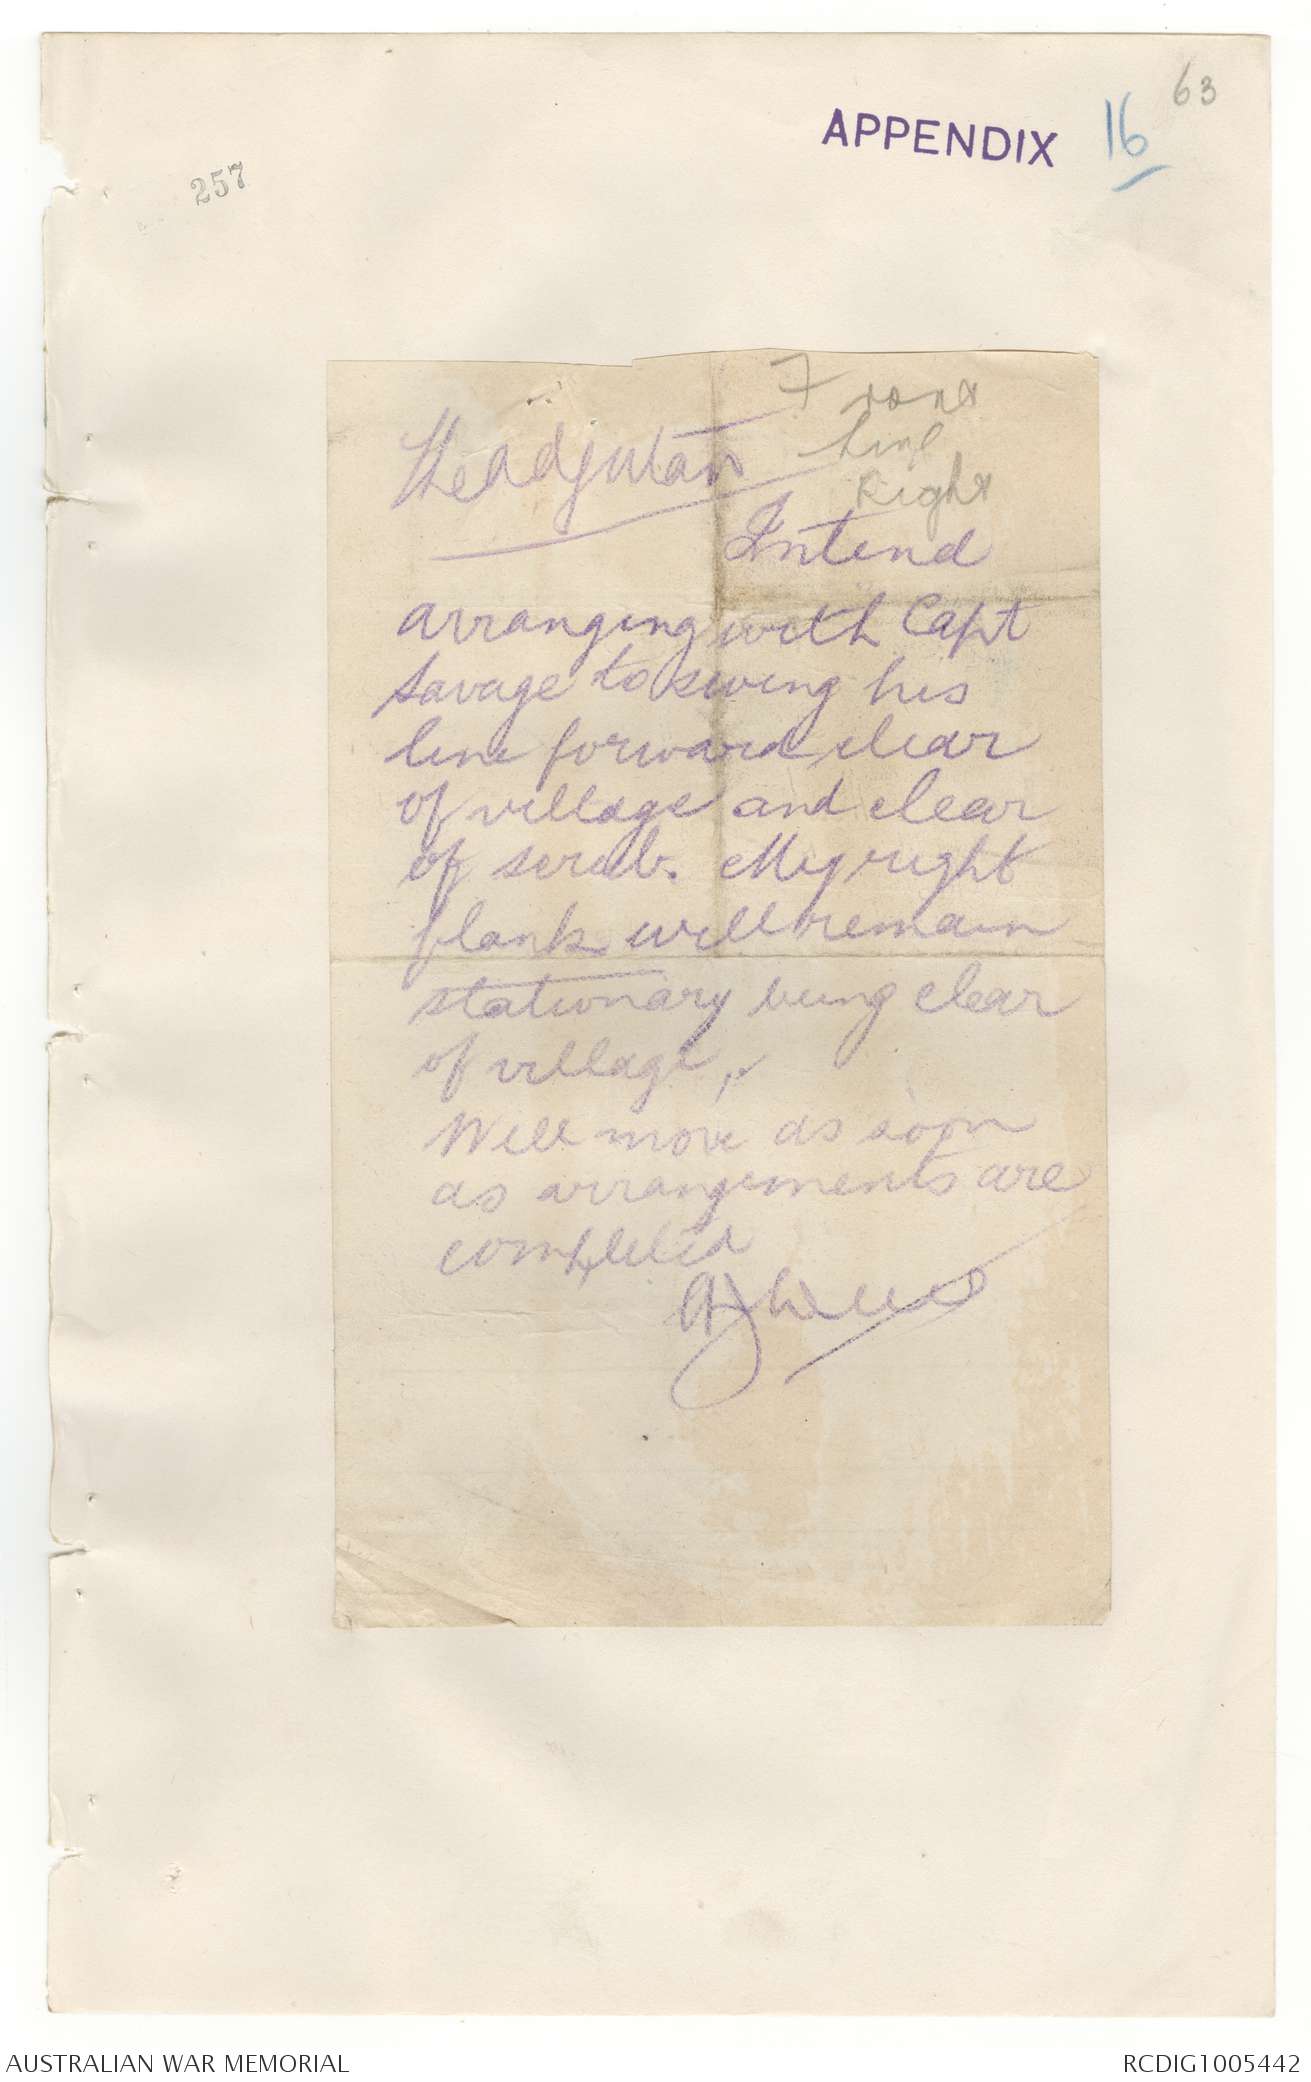 63
APPENDIX 16
257
Front
line
Right
The Adjutan
Intend
arranging with Capt
Savage to swing his
line forward clear
of village and clear
of scrub. My right
flank will remain
stationary being clear
of village,
Will move as soon
as arrangements are
completed
AUSTRALIAN WAR MEMORIAL
RCDIG1005442